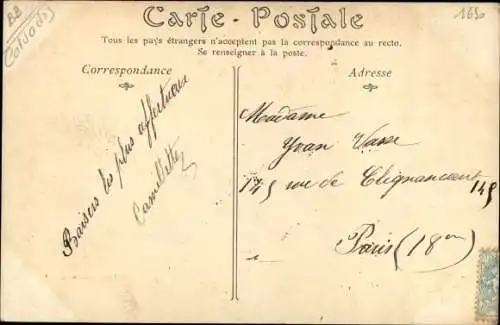 BB
Calvados
1650
Carte - Postale
Tous les pays étrangers n'acceptent pas la correspondance au recto.
Se renseigner à la poste.
Correspondance
Adresse
Baisers les plus affectueux
Camillette
Madame
Yvan Vasse
145 rue de Clignancourt 145
Paris (18em)